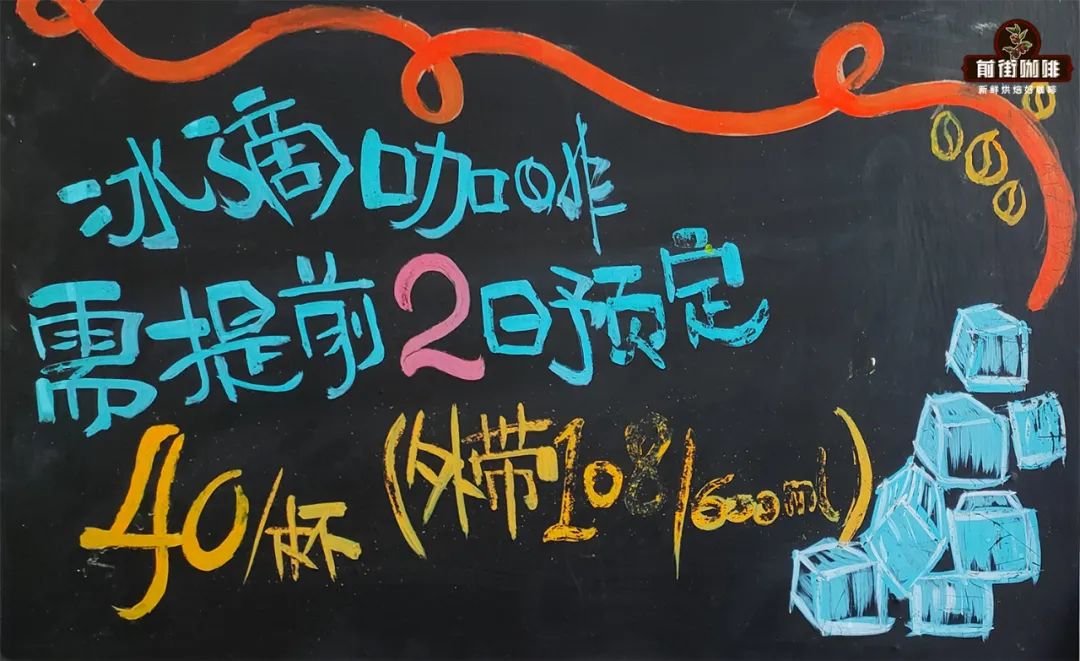 前街咖啡
新鲜烘焙好咖啡
冰滴咖啡
需提前2日预定
40/杯 (外带108/600ml)